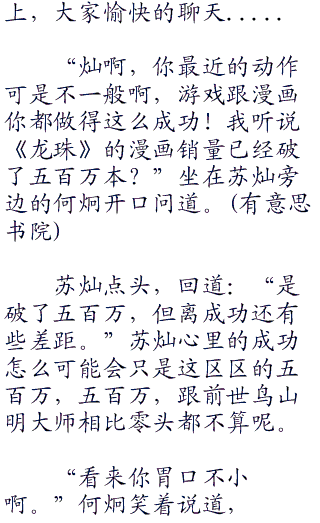 上，大家愉快的聊天.....
“灿啊，你最近的动作
可是不一般啊，游戏跟漫画
你都做得这么成功！我听说
《龙珠》的漫画销量已经破
了五百万本？”坐在苏灿旁
边的何炯开口问道。(有意思
书院)
苏灿点头，回道：“是
破了五百万，但离成功还有
些差距。”苏灿心里的成功
怎么可能会只是这区区的五
百万，五百万，跟前世鸟山
明大师相比零头都不算呢。
“看来你胃口不小
啊。”何炯笑着说道，